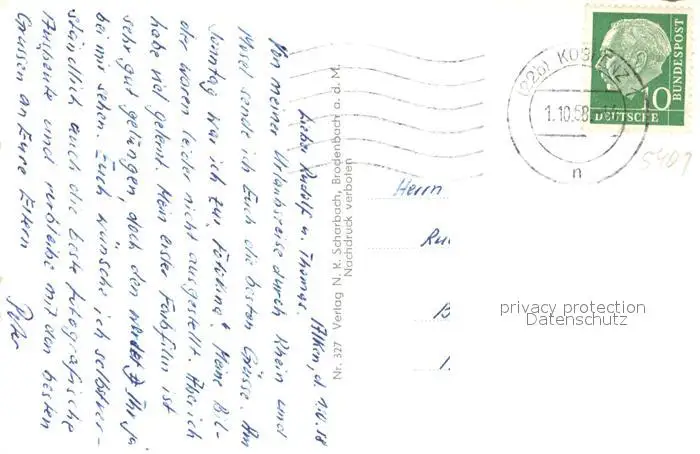 Alken, d. 1.10.58
Lieber Rudolf u. Thomas.
Von meiner Urlaubsreise durch Rhein und
Mosel sende ich Euch die besten Grüsse. Am
Sonntag war ich zur "Fotokina". Meine Bil-
der waren leider nicht ausgestellt. Aber ich
habe viel gelernt. Mein erster Farbfilm ist
sehr gut gelungen, doch den werdet Ihr ja
bei mir sehen. Euch wünsche ich selbstver-
ständlich auch die beste fotografische
Ausbeute und verbleibe mit den besten
Grüssen an Eure Eltern
Peter
Nr. 327 Verlag N. K. Scharbach, Brodenbach a. d. M.
Nachdruck verboten
(22b) KOBLENZ
1.10.58
n
10
DEUTSCHE
BUNDESPOST
5401
Herrn
Ru
privacy protection
Datenschutz